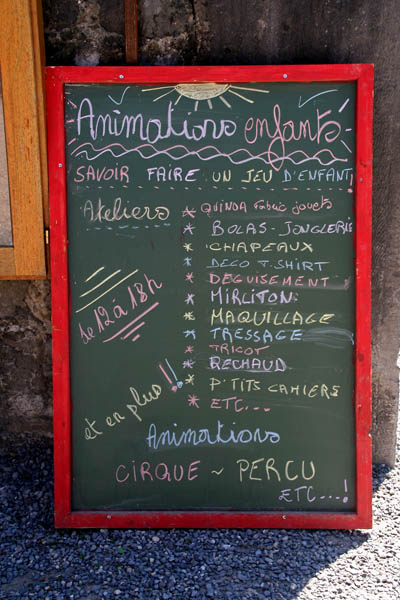 Animations enfants
SAVOIR FAIRE UN JEU D'ENFANT
Ateliers
* QUINDA Fabric jouets
* BOLAS - JONGLERIE
* CHAPEAUX
* DECO T.SHIRT
* DEGUISEMENT
* MIRLITON
* MAQUILLAGE
* TRESSAGE
* TRICOT
* RECHAUD
* P'TITS CAHIERS
* ETC...
de 12 à 18h
et en plus!!
Animations
CIRQUE ~ PERCU
ETC...!